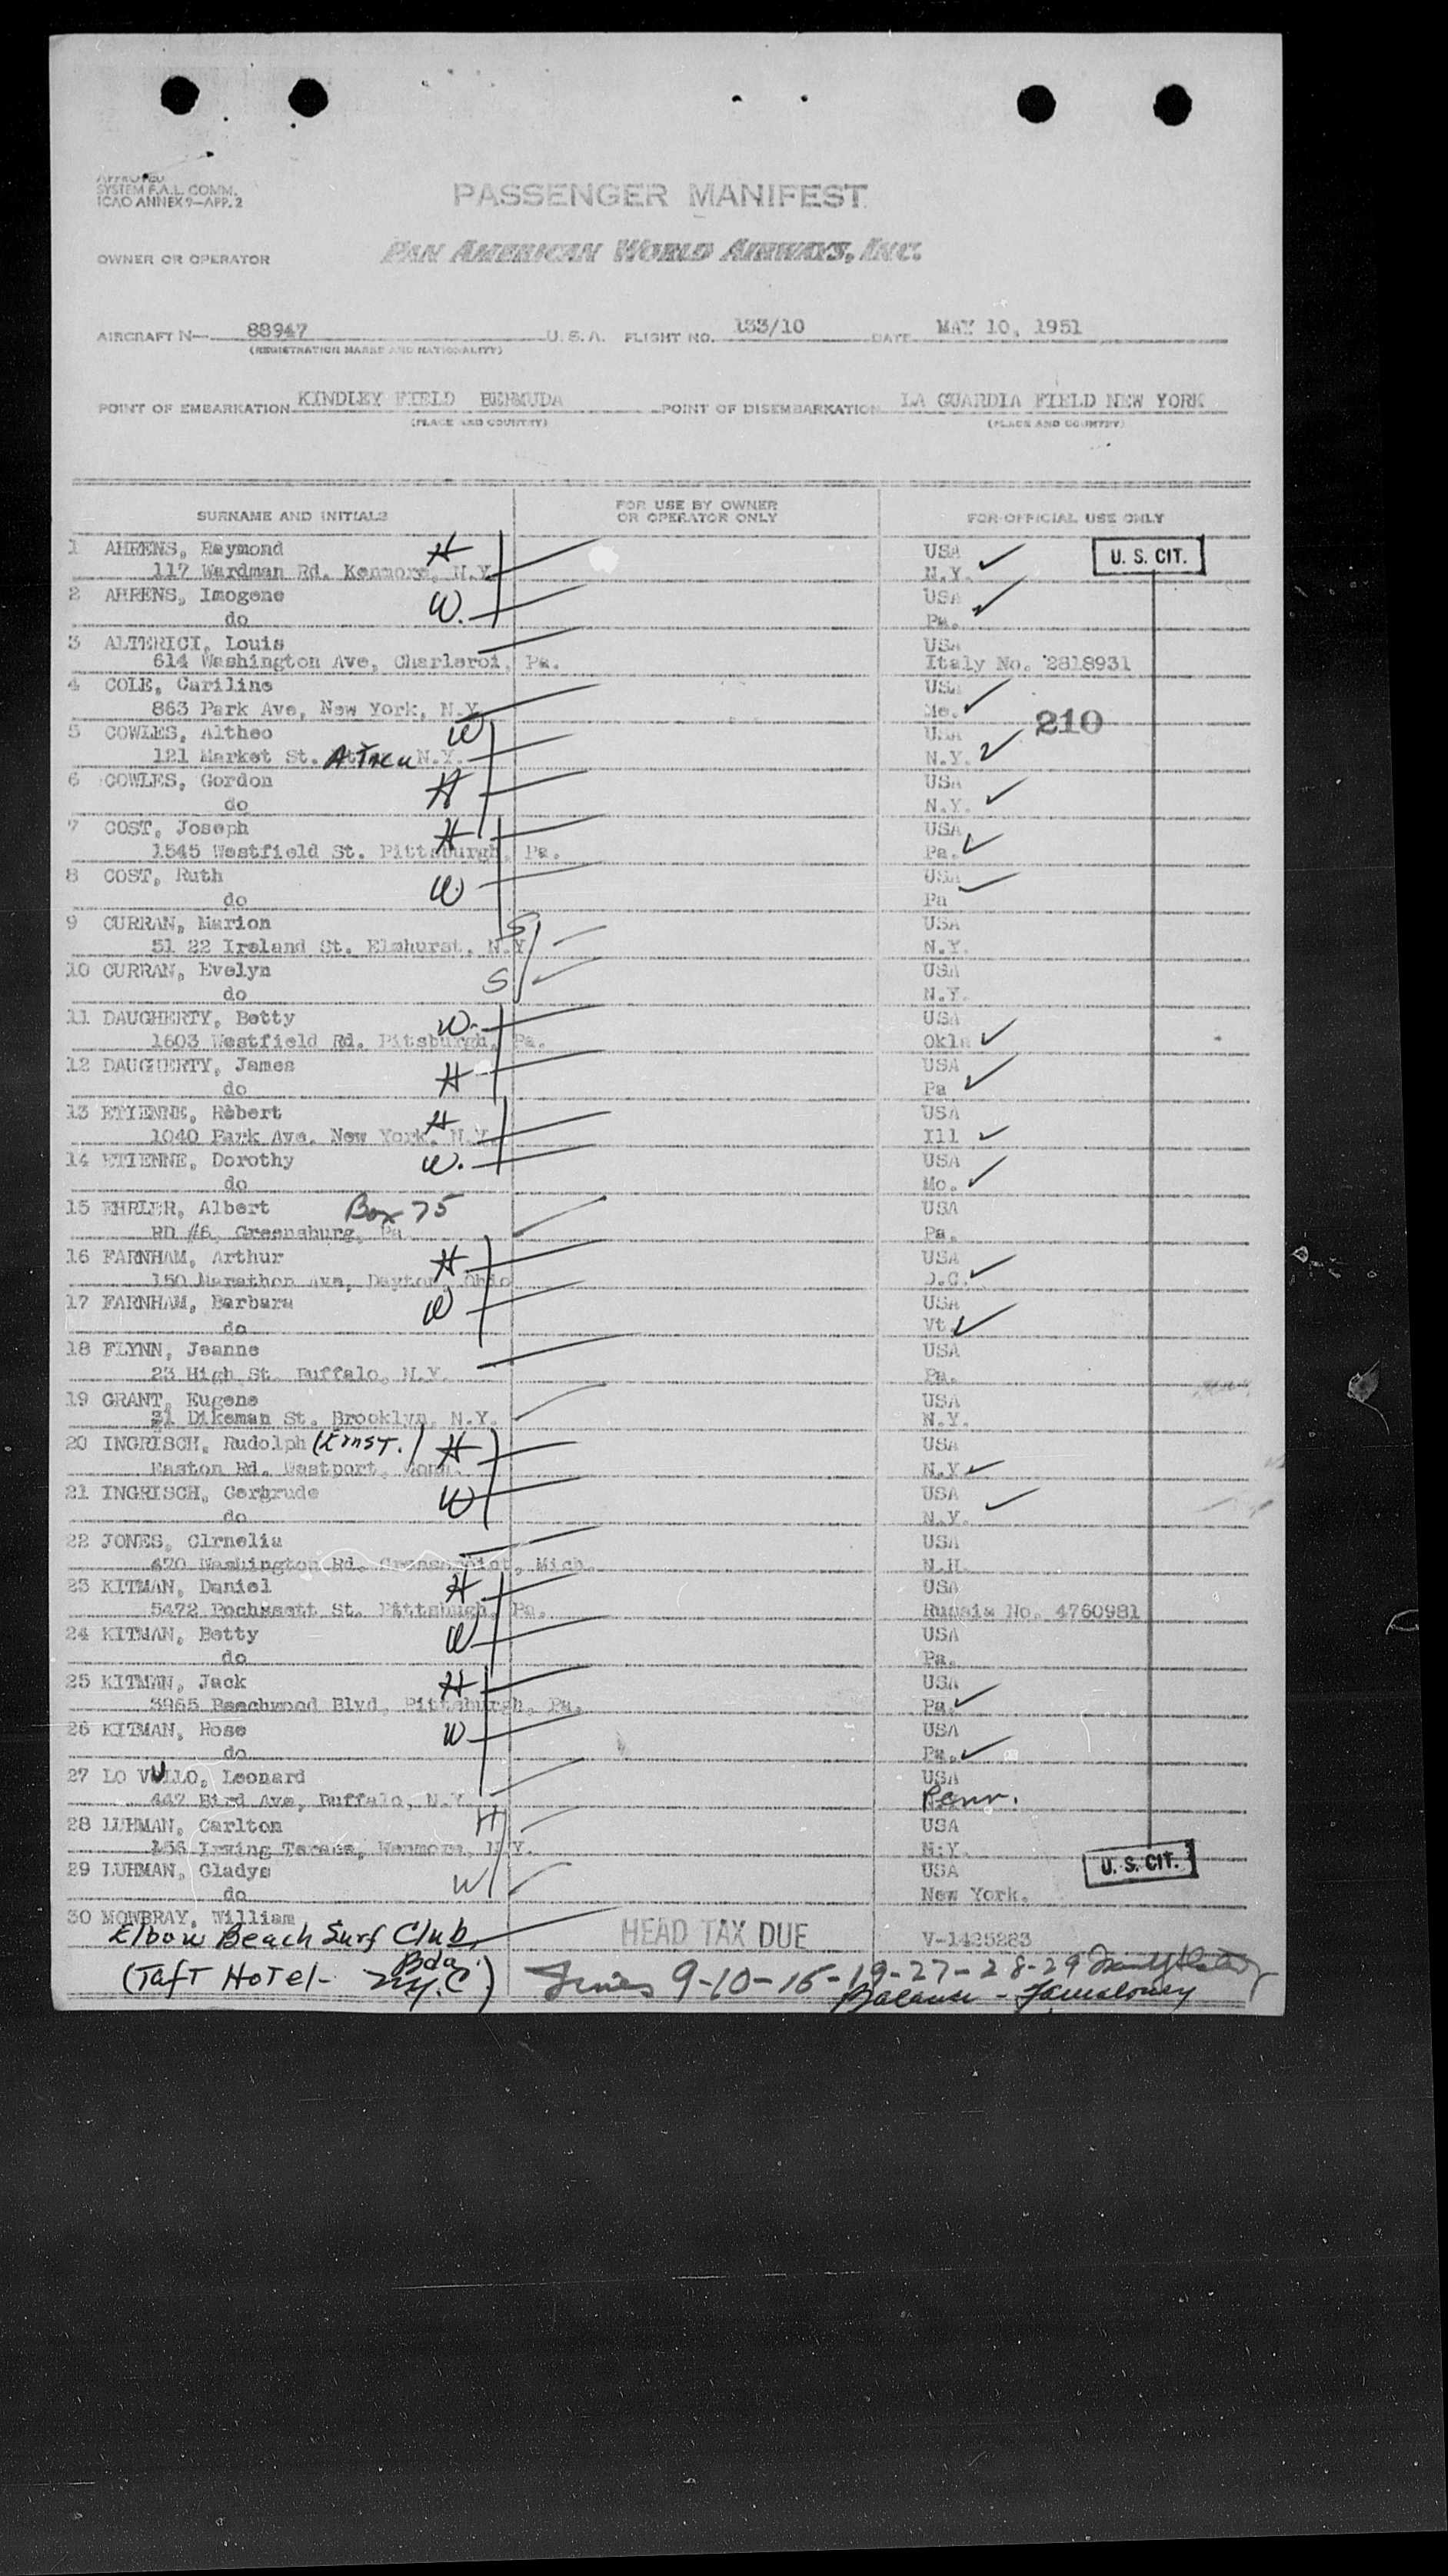 APPROVED
SYSTEM F.A.L. COMM.
ICAO ANNEX 9—APP. 2
PASSENGER MANIFEST
OWNER OR OPERATOR PAN AMERICAN WORLD AIRWAYS, INC.
AIRCRAFT N— 88947 U.S.A. FLIGHT NO. 133/10 DATE MAY 10, 1951
(REGISTRATION MARKS AND NATIONALITY)
POINT OF EMBARKATION KINDLEY FIELD BERMUDA POINT OF DISEMBARKATION LA GUARDIA FIELD NEW YORK
(PLACE AND COUNTRY) (PLACE AND COUNTRY)
SURNAME AND INITIALS FOR USE BY OWNER OR OPERATOR ONLY FOR OFFICIAL USE ONLY
1 AHRENS, Raymond H USA U. S. CIT.
117 Wardman Rd. Kenmore, N.Y. N.Y.
2 AHRENS, Imogene W. USA
do Pa.
3 ALTERICI, Louis USA
614 Washington Ave, Charleroi, Pa. Italy No. 2818931
4 COLE, Cariline USA
863 Park Ave, New York, N.Y. Mo. 210
5 COWLES, Altheo W USA
121 Market St. N.Y. N.Y.
6 COWLES, Gordon H USA
do N.Y.
7 COST, Joseph H USA
1545 Westfield St. Pittsburgh, Pa. Pa.
8 COST, Ruth W USA
do Pa
9 CURRAN, Marion S USA
51 22 Ireland St. Elmhurst, N.Y. N.Y.
10 CURRAN, Evelyn S USA
do N.Y.
11 DAUGHERTY, Betty W. USA
1603 Westfield Rd. Pitsburgh, Pa. Okla
12 DAUGHERTY, James H USA
do Pa
13 ETIENNE, Robert H USA
1040 Park Ave. New York, N.Y. Ill
14 ETIENNE, Dorothy W. USA
do Mo.
15 EHRLER, Albert Box 75 USA
RD #6, Greensburg, Pa Pa.
16 FARNHAM, Arthur H USA
150 Marathon Ave, Dayton, Ohio D.C.
17 FARNHAM, Barbara W USA
do Vt.
18 FLYNN, Jeanne USA
23 High St. Buffalo, N.Y. Pa.
19 GRANT, Eugene USA
31 Dikeman St. Brooklyn, N.Y. N.Y.
20 INGRISCH, Rudolph (Ernst.) H USA
Easton Rd. Westport, Conn. N.Y.
21 INGRISCH, Gertrude W USA
do N.Y.
22 JONES, Clrnelia USA
470 Washington Rd. Mich. N.H.
23 KITMAN, Daniel H USA
5472 St. Pittsburgh, Pa. Russia No. 4760981
24 KITMAN, Betty W USA
do Pa.
25 KITMAN, Jack H USA
3965 Beechwood Blvd, Pittsburgh, Pa. Pa.
26 KITMAN, Rose W USA
do Pa.
27 LO VULLO, Leonard USA
447 Bird Ave, Buffalo, N.Y. Penn.
28 LUHMAN, Carlton H USA
156 Irving N.Y. N.Y.
29 LUHMAN, Gladys W USA U. S. CIT.
do New York.
30 MOWBRAY, William
Elbow Beach Surf Club, Bda. HEAD TAX DUE V-1425223
(Taft Hotel- N.Y.C) Lines 9-10-15-19-27-28-29
Balance -